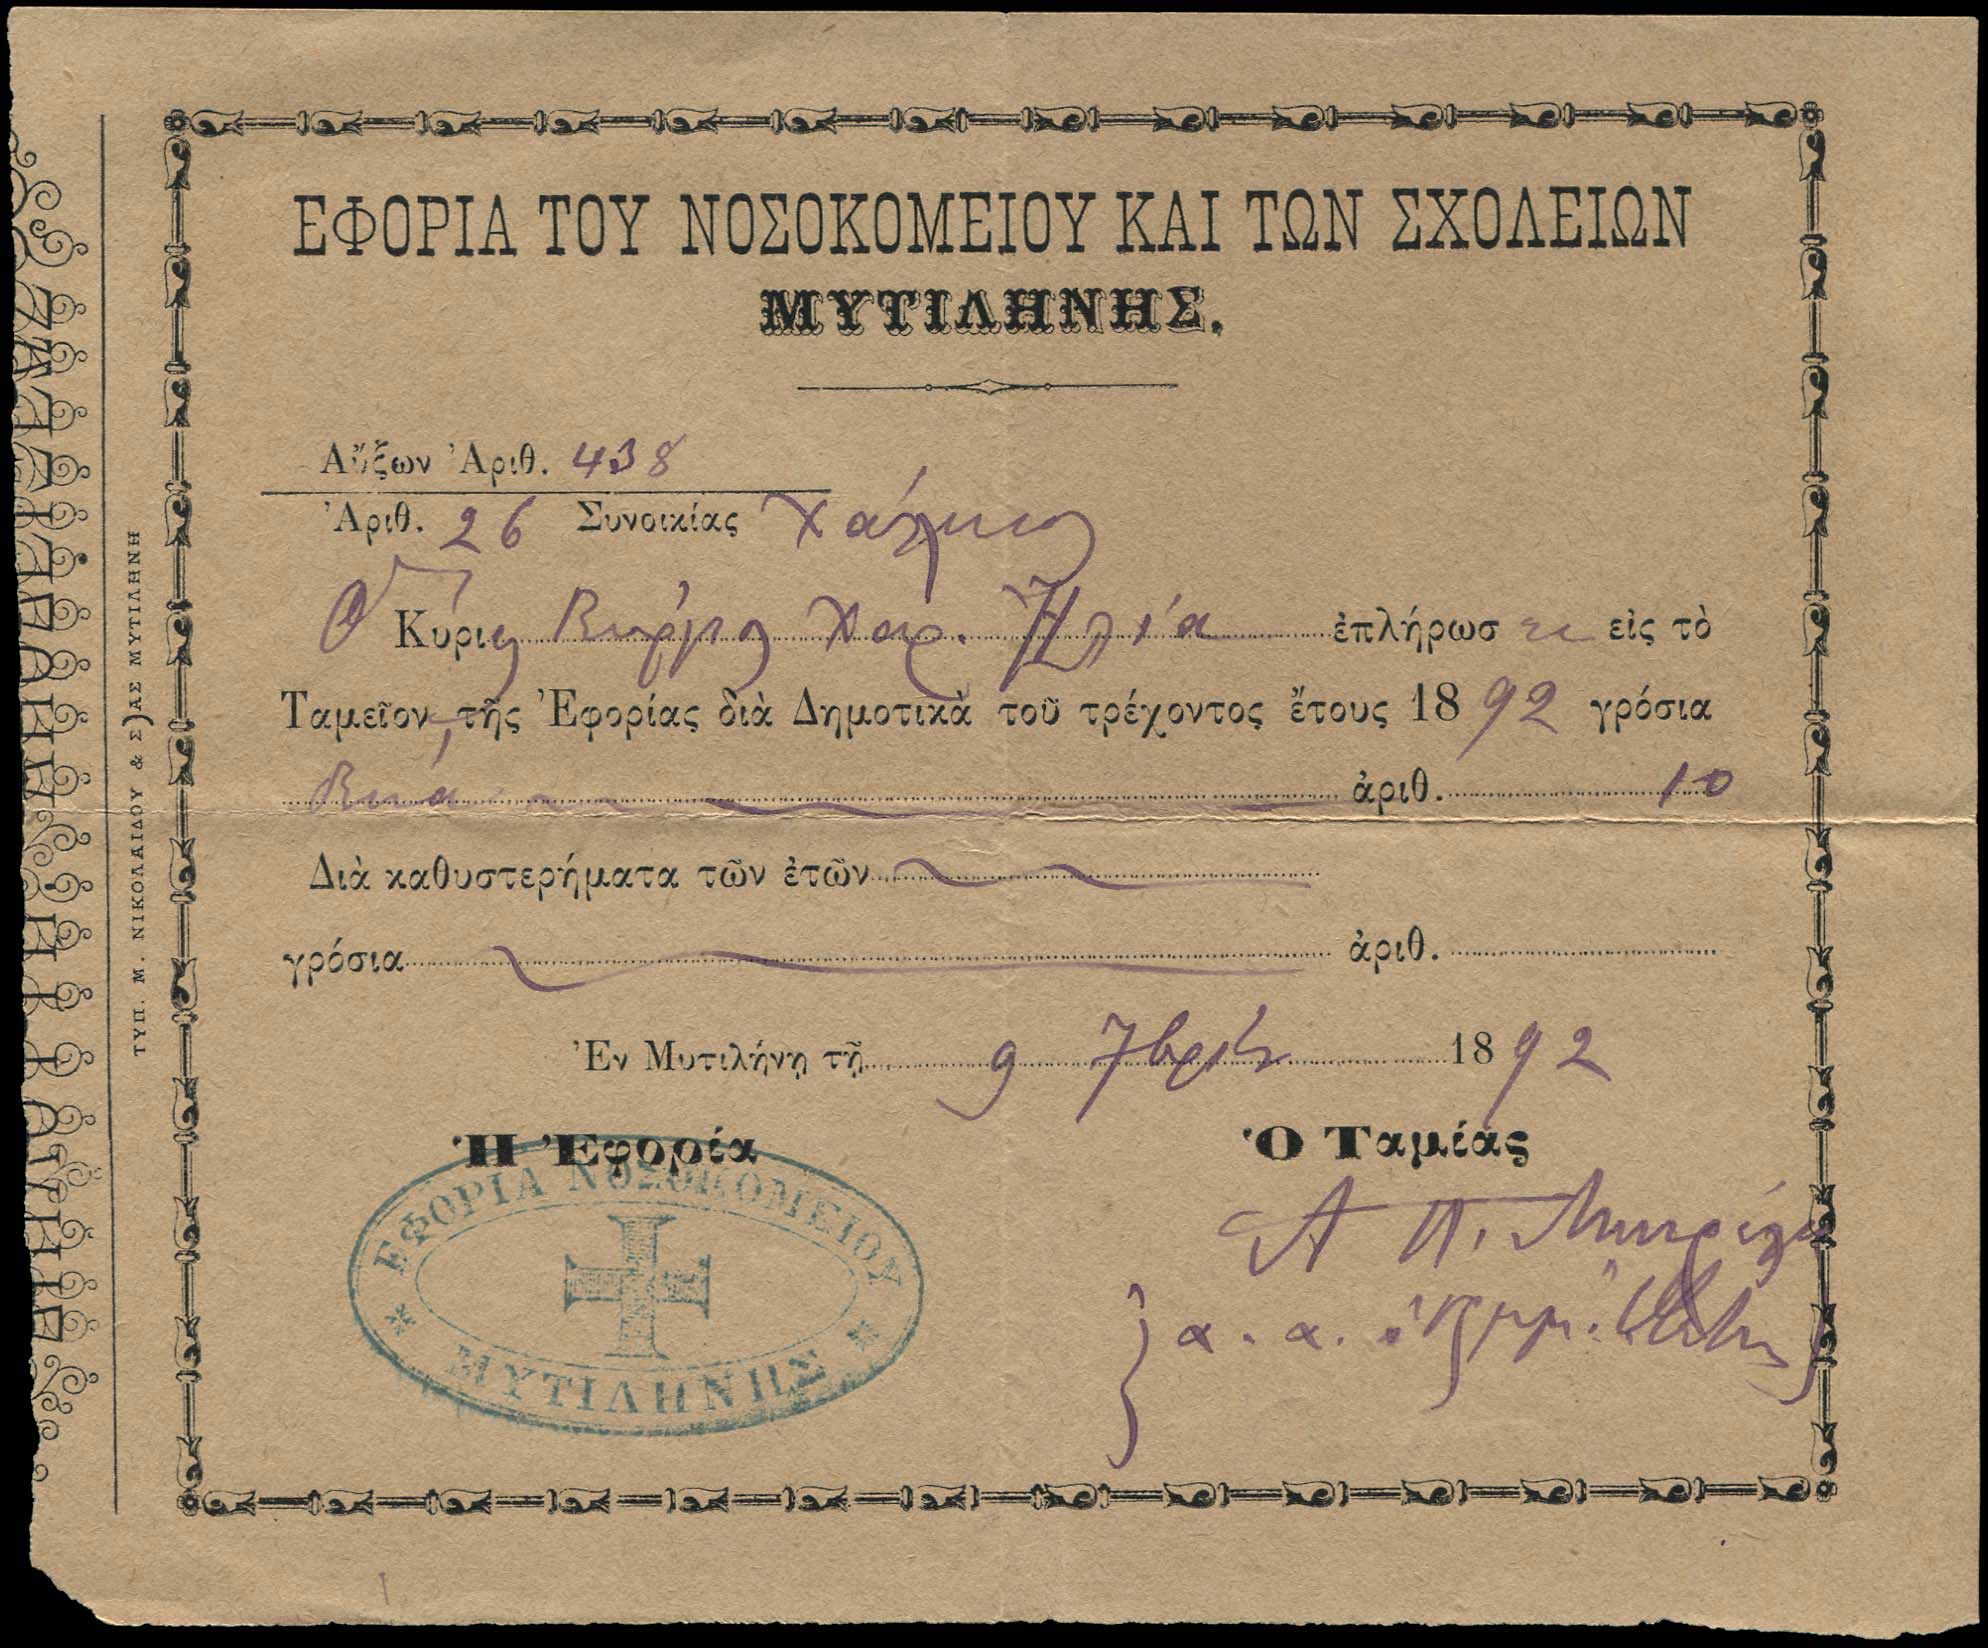 ΕΦΟΡΙΑ ΤΟΥ ΝΟΣΟΚΟΜΕΙΟΥ ΚΑΙ ΤΩΝ ΣΧΟΛΕΙΩΝ
ΜΥΤΙΛΗΝΗΣ.
Αὔξων Ἀριθ. 438
Ἀριθ. 26 Συνοικίας
Ὁ Κύριος Χαρ. Ἠλία ἐπλήρωσ εν εἰς τὸ
Ταμεῖον τῆς Ἐφορίας διὰ Δημοτικὰ τοῦ τρέχοντος ἔτους 1892 γρόσια
ἀριθ. 10
Διὰ καθυστερήματα τῶν ἐτῶν
γρόσια ἀριθ.
Ἐν Μυτιλήνῃ τῇ 9 7βρίου 1892
Ἡ Ἐφορία Ὁ Ταμίας
ΕΦΟΡΙΑ ΝΟΣΟΚΟΜΕΙΟΥ
ΜΥΤΙΛΗΝΗΣ
ΤΥΠ. Μ. ΝΙΚΟΛΑΙΔΟΥ & Σ)ΑΣ ΜΥΤΙΛΗΝΗ